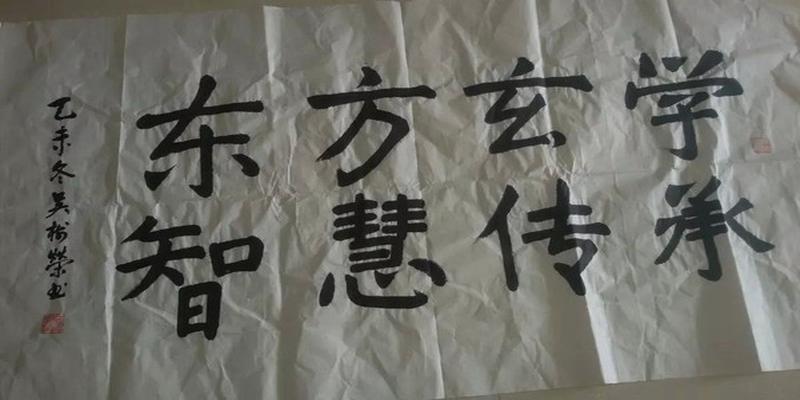 学承
玄传
方慧
东智
乙未冬吴树荣书